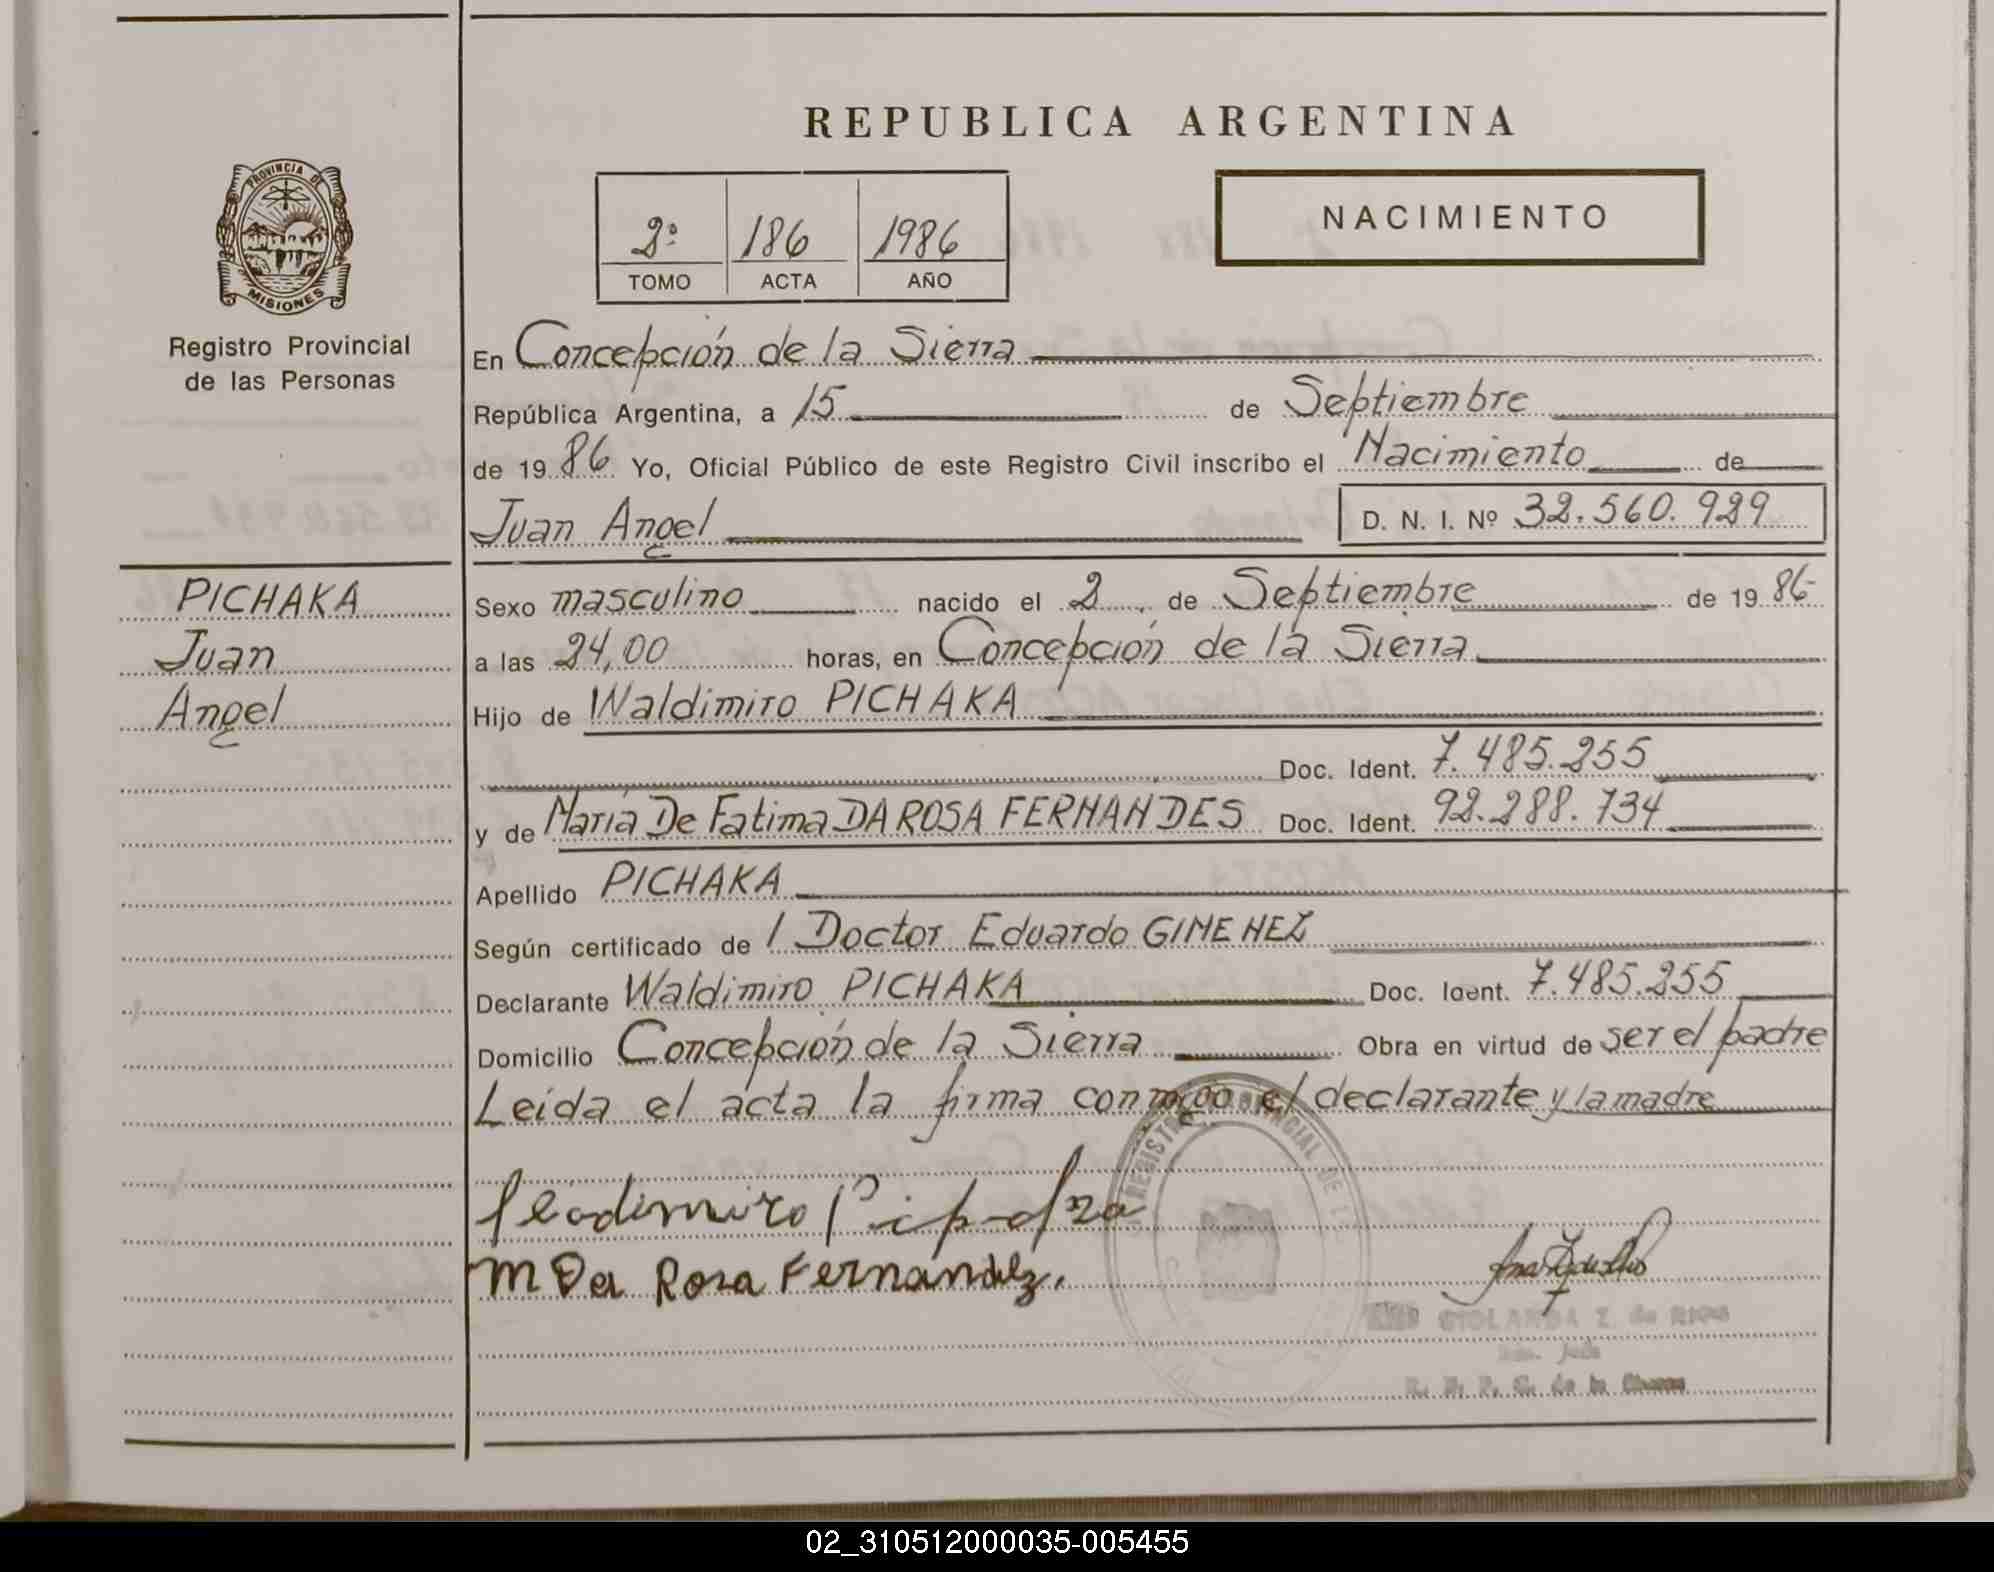 REPUBLICA ARGENTINA
PROVINCIA DE
MISIONES
Registro Provincial
de las Personas
2º 186 1986
TOMO ACTA AÑO
NACIMIENTO
En Concepción de la Sierra
República Argentina, a 15 de Septiembre
de 1986 Yo, Oficial Público de este Registro Civil inscribo el Nacimiento de
Juan Angel D. N. I. Nº 32.560.929
PICHAKA
Juan
Angel
Sexo masculino nacido el 2 de Septiembre de 1986
a las 24,00 horas, en Concepción de la Sierra
Hijo de Waldimiro PICHAKA
Doc. Ident. 7.485.255
y de María De Fatima DA ROSA FERNANDES Doc. Ident. 92.288.734
Apellido PICHAKA
Según certificado de l Doctor Eduardo GIMENEZ
Declarante Waldimiro PICHAKA Doc. Ident. 7.485.255
Domicilio Concepción de la Sierra Obra en virtud de ser el padre
Leída el acta la firma conmigo el declarante y la madre
REGISTRO PROVINCIAL DE
M Da Rosa Fernandez.
Z. de RIOS
02_310512000035-005455